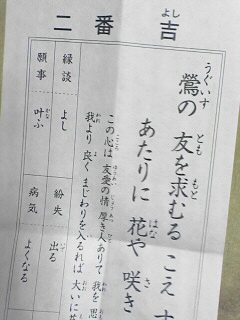 二番 吉
鶯の友を求むるこえす
あたりに花や咲き
この心は友愛の情厚き人ありて我を思
我より良くまじわりを入るれば大いに
縁談 よし 紛失 出る
願事 叶ふ 病気 よくなる